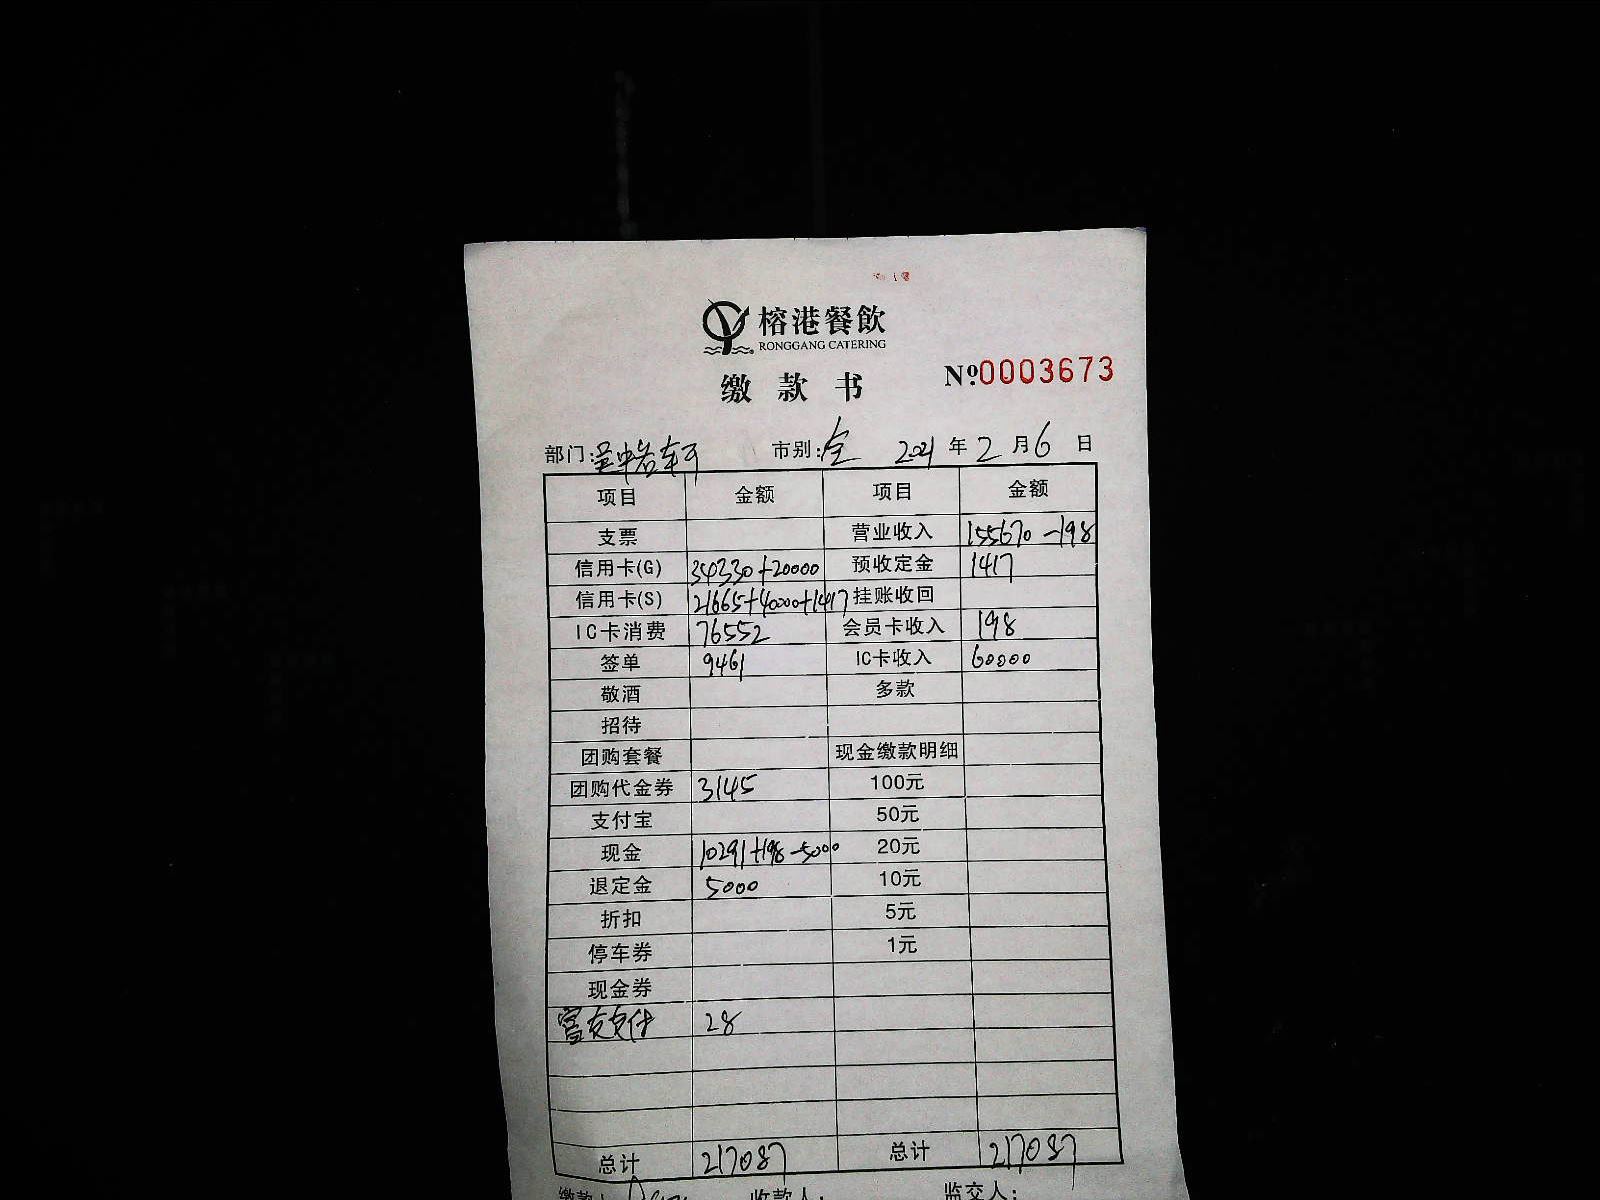 榕港餐飲
RONGGANG CATERING
缴款书 №0003673
部门: 市别:全 2021年2月6日
项目 金额 项目 金额
支票 营业收入 155670-198
信用卡(G) 34330+20000 预收定金 1417
信用卡(S) 21665+40000+1417 挂账收回
IC卡消费 76552 会员卡收入 198
签单 9461 IC卡收入 60000
敬酒 多款
招待
团购套餐 现金缴款明细
团购代金券 3145 100元
支付宝 50元
现金 10291+198-5000 20元
退定金 5000 10元
折扣 5元
停车券 1元
现金券
富友支付 28
总计 217087 总计 217087
缴款人 收款人: 监交人: